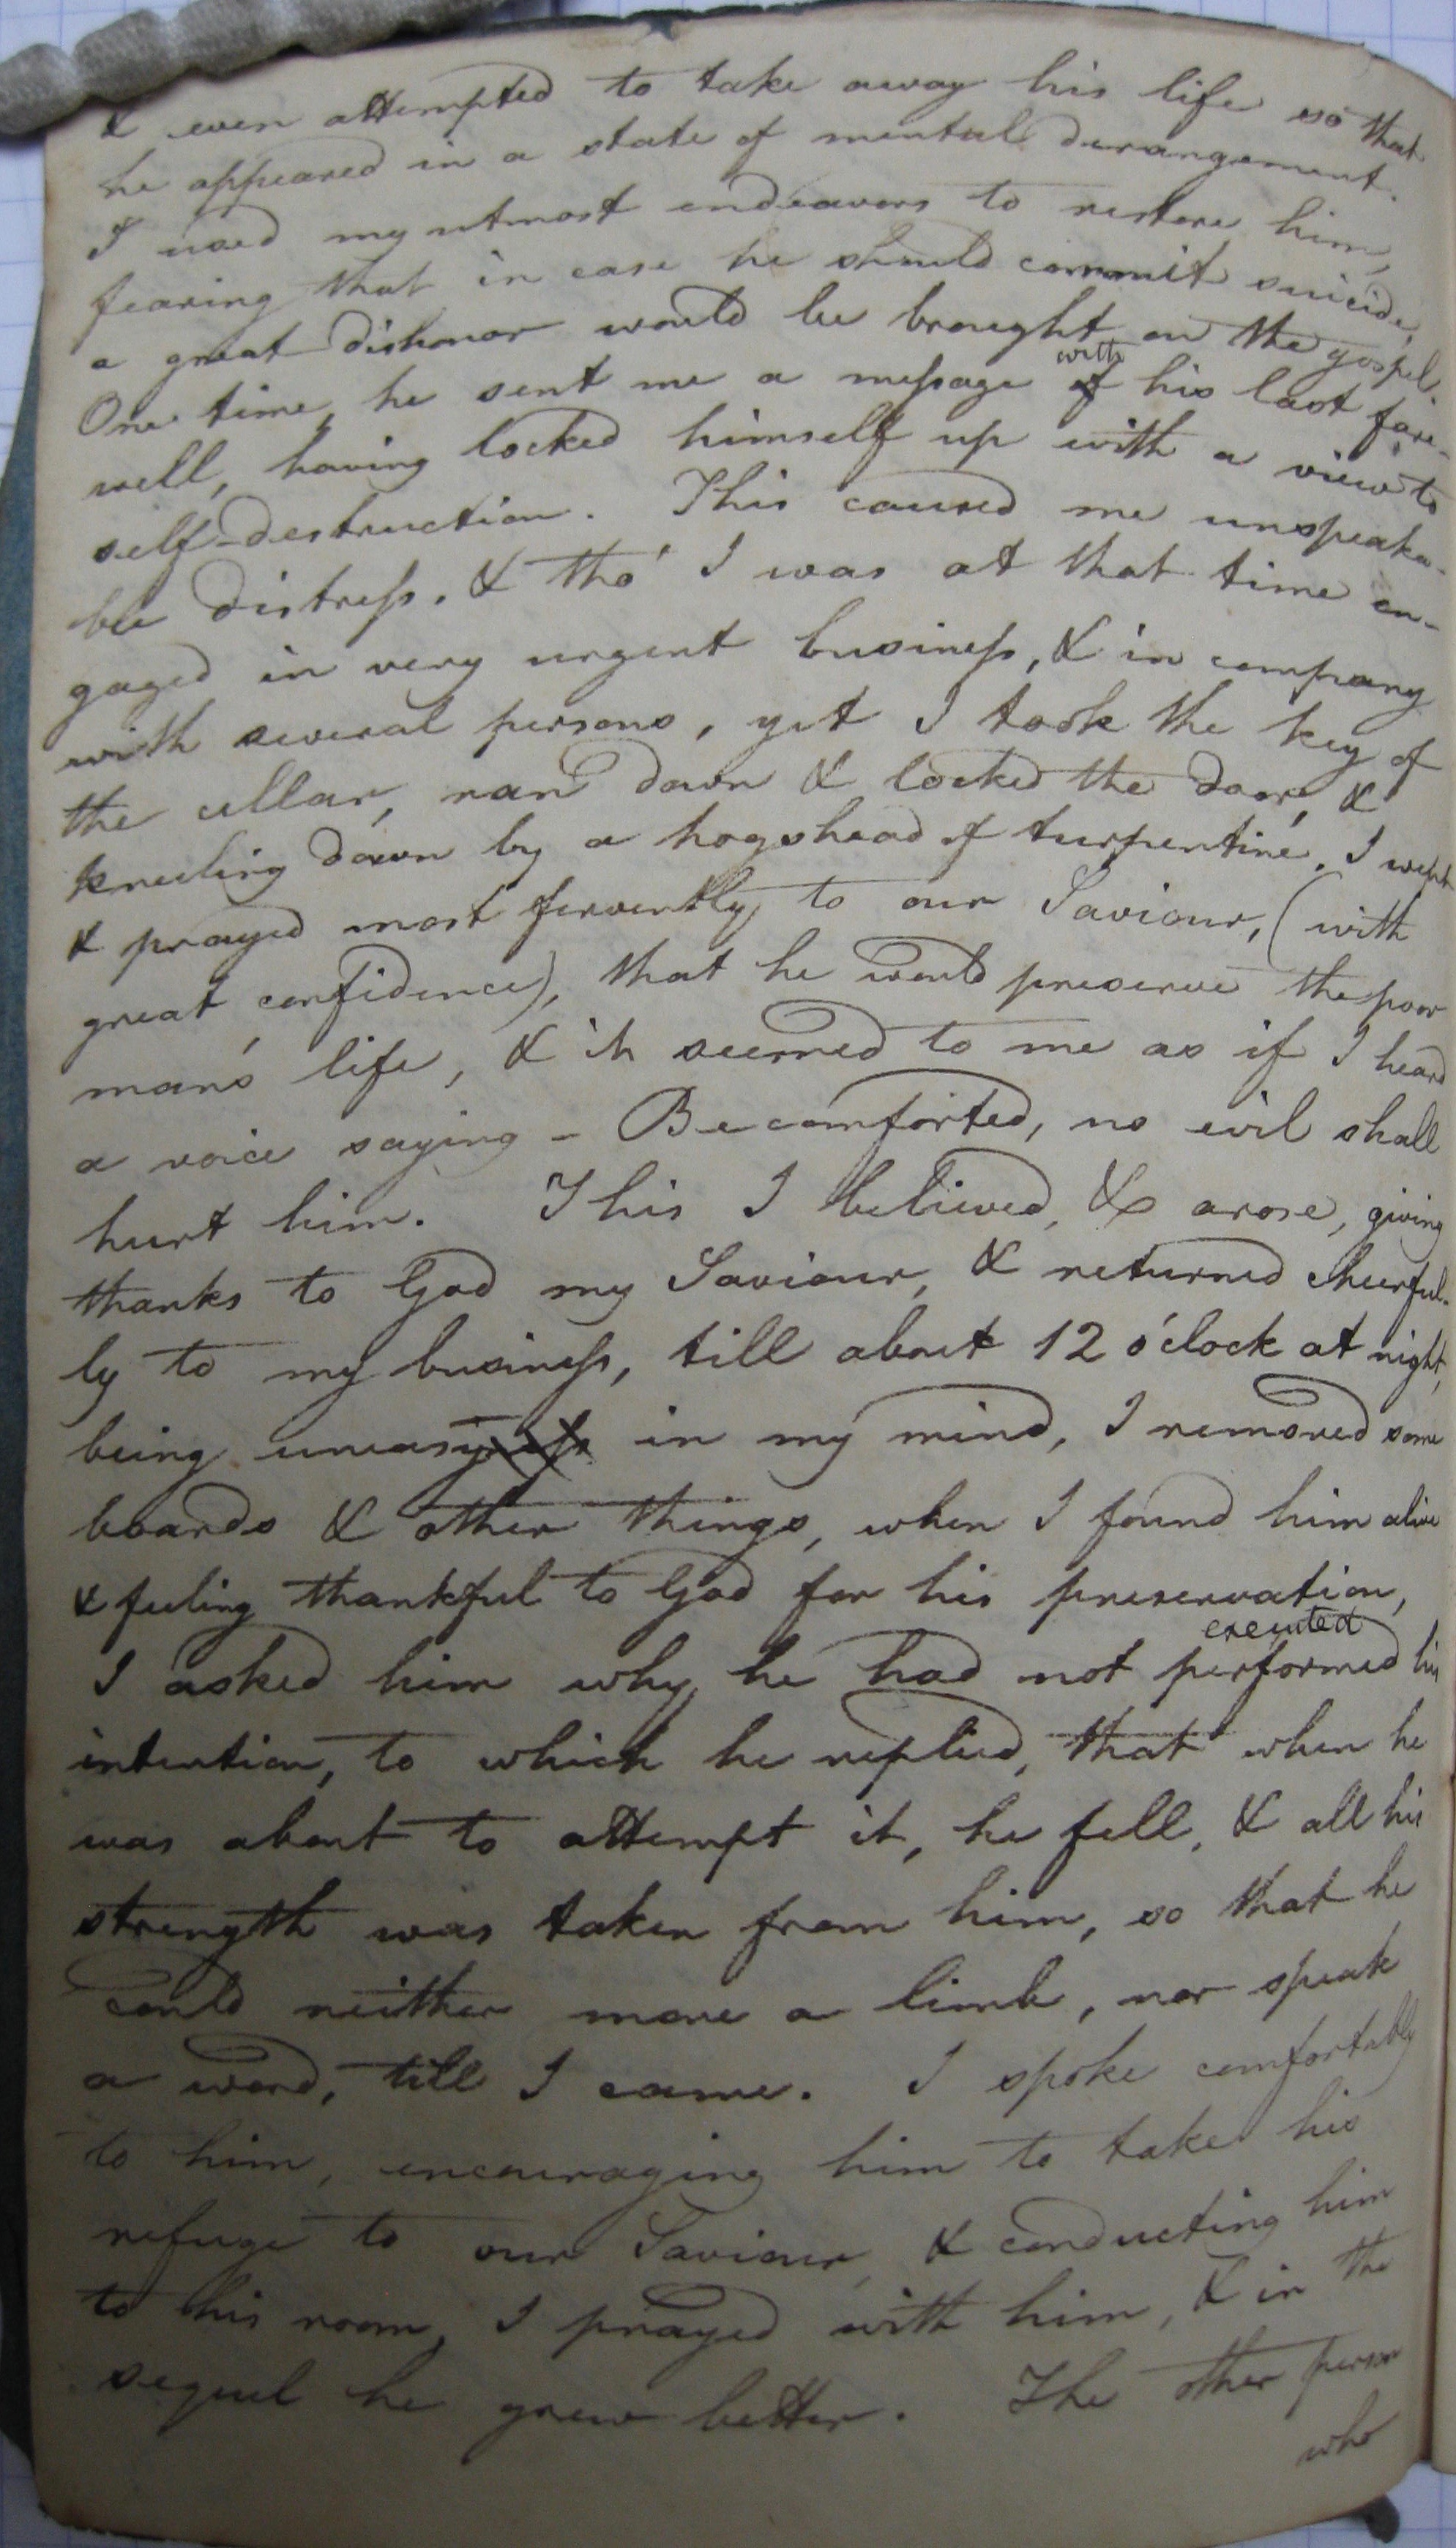 & even attempted to take away his life so that
he appeared in a state of mental derangement.
I used my utmost endeavors to restore him,
fearing that in case he should commit suicide,
a great dishonor would be brought on the gospel.
with
One time, he sent me a message of his last fare-
well, having locked himself up with a view to
self-destruction. This caused me unspeaka-
ble distress, & tho' I was at that time en-
gaged in very urgent business, & in company
with several persons, yet I took the key of
the cellar, ran down & locked the door, &
kneeling down by a hogshead of turpentine, I wept
& prayed most fervently to our Saviour, (with
great confidence), that he would preserve the poor
man's life, & it seemed to me as if I heard
a voice saying - Be comforted, no evil shall
hurt him. This I believed, & arose, giving
thanks to God my Saviour, & returned cheerful-
ly to my business, till about 12 o'clock at night,
being uneasyness in my mind, I removed some
boards & other things, when I found him alive
& feeling thankful to God for his preservation,
executed
I asked him why he had not performed his
intention, to which he replied, that when he
was about to attempt it, he fell, & all his
strength was taken from him, so that he
could neither move a limb, nor speak
a word, till I came. I spoke comfortably
to him, encouraging him to take his
refuge to our Saviour, & conducting him
to his room, I prayed with him, & in the
sequel he grew better. The other person
who